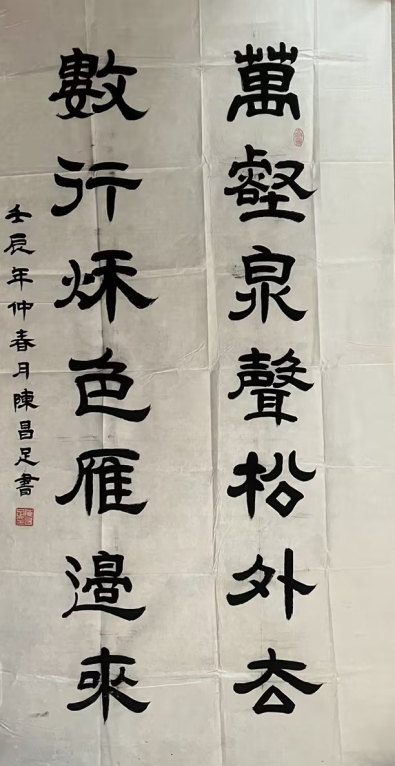 萬壑泉聲松外去
數行秌色雁邊來
壬辰年仲春月陳昌足書